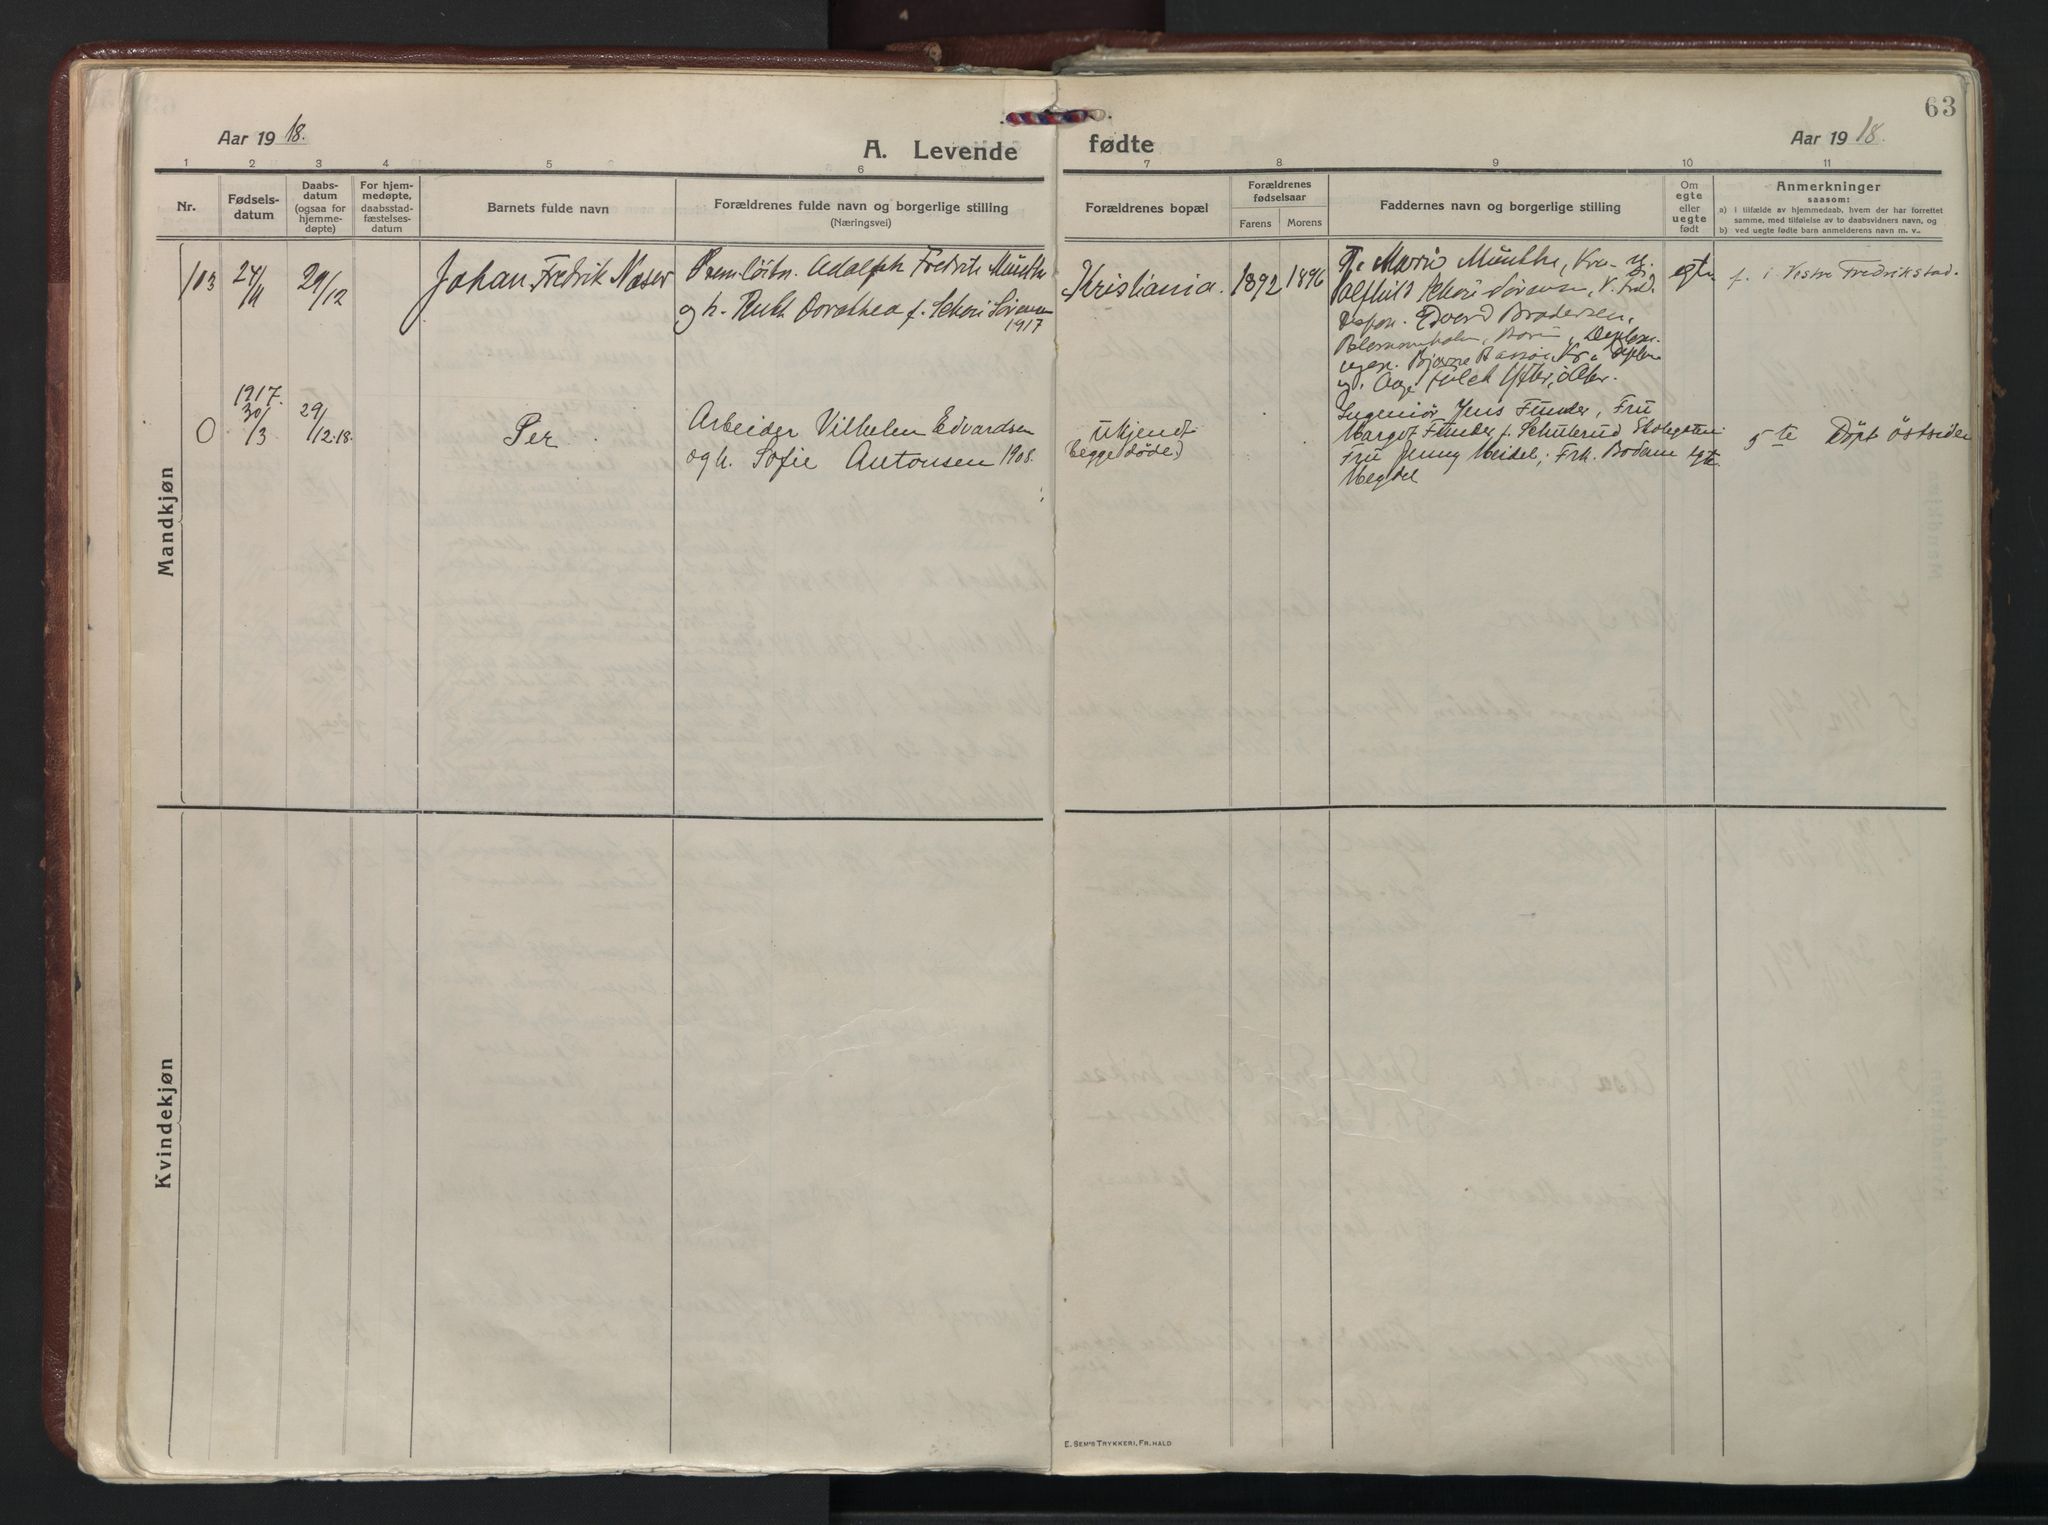 63
Aar 19 18.
A. Levende fødte
Aar 19 18.
1 2 3 4 5 6 7 8 9 10 11
Nr.
Fødsels-
datum
Daabs-
datum
(ogsaa for
hjemme-
døpte)
For hjem-
medøpte,
daabsstad-
fæstelses-
datum
Barnets fulde navn
Forældrenes fulde navn og borgerlige stilling
(Næringsvei)
Forældrenes bopæl
Forældrenes
fødselsaar
Farens Morens
Faddernes navn og borgerlige stilling
Om
egte
eller
uegte
født
Anmerkninger
saasom:
a) i tilfælde av hjemmedaab, hvem der har forrettet
samme, med tilføielse av to daabsvidners navn, og
b) ved uegte fødte barn anmelderens navn m. v..
Mandkjøn
103
24/11
29/12
Johan Fredrik Naser
Prem.løitn. Adolph Fredrik Munthe
og h. Ruth Dorothea f. Schou Sørensen
1917
Kristiania.
1892
1896
Marie Munthe, Kra
Alfhild Schou Sørensen,
Edvard Brodersen,
Bjarne
egte
f. i Vestre Fredrikstad.
0
1917.
30/3
29/12.18.
Per
Arbeider Vilhelm Edvardsen
og h. Sofie Antonsen 1908.
Ukjendt
begge døde)
Ingeniør Jens Funder, Fru
Margot Funder f. Schulerud
Fru Jenny Meidel; Frk. Bodam
Megdel
egte.
5te Døpt Østsiden
Kvindekjøn
E. Sem's Trykkeri, Fr.hald